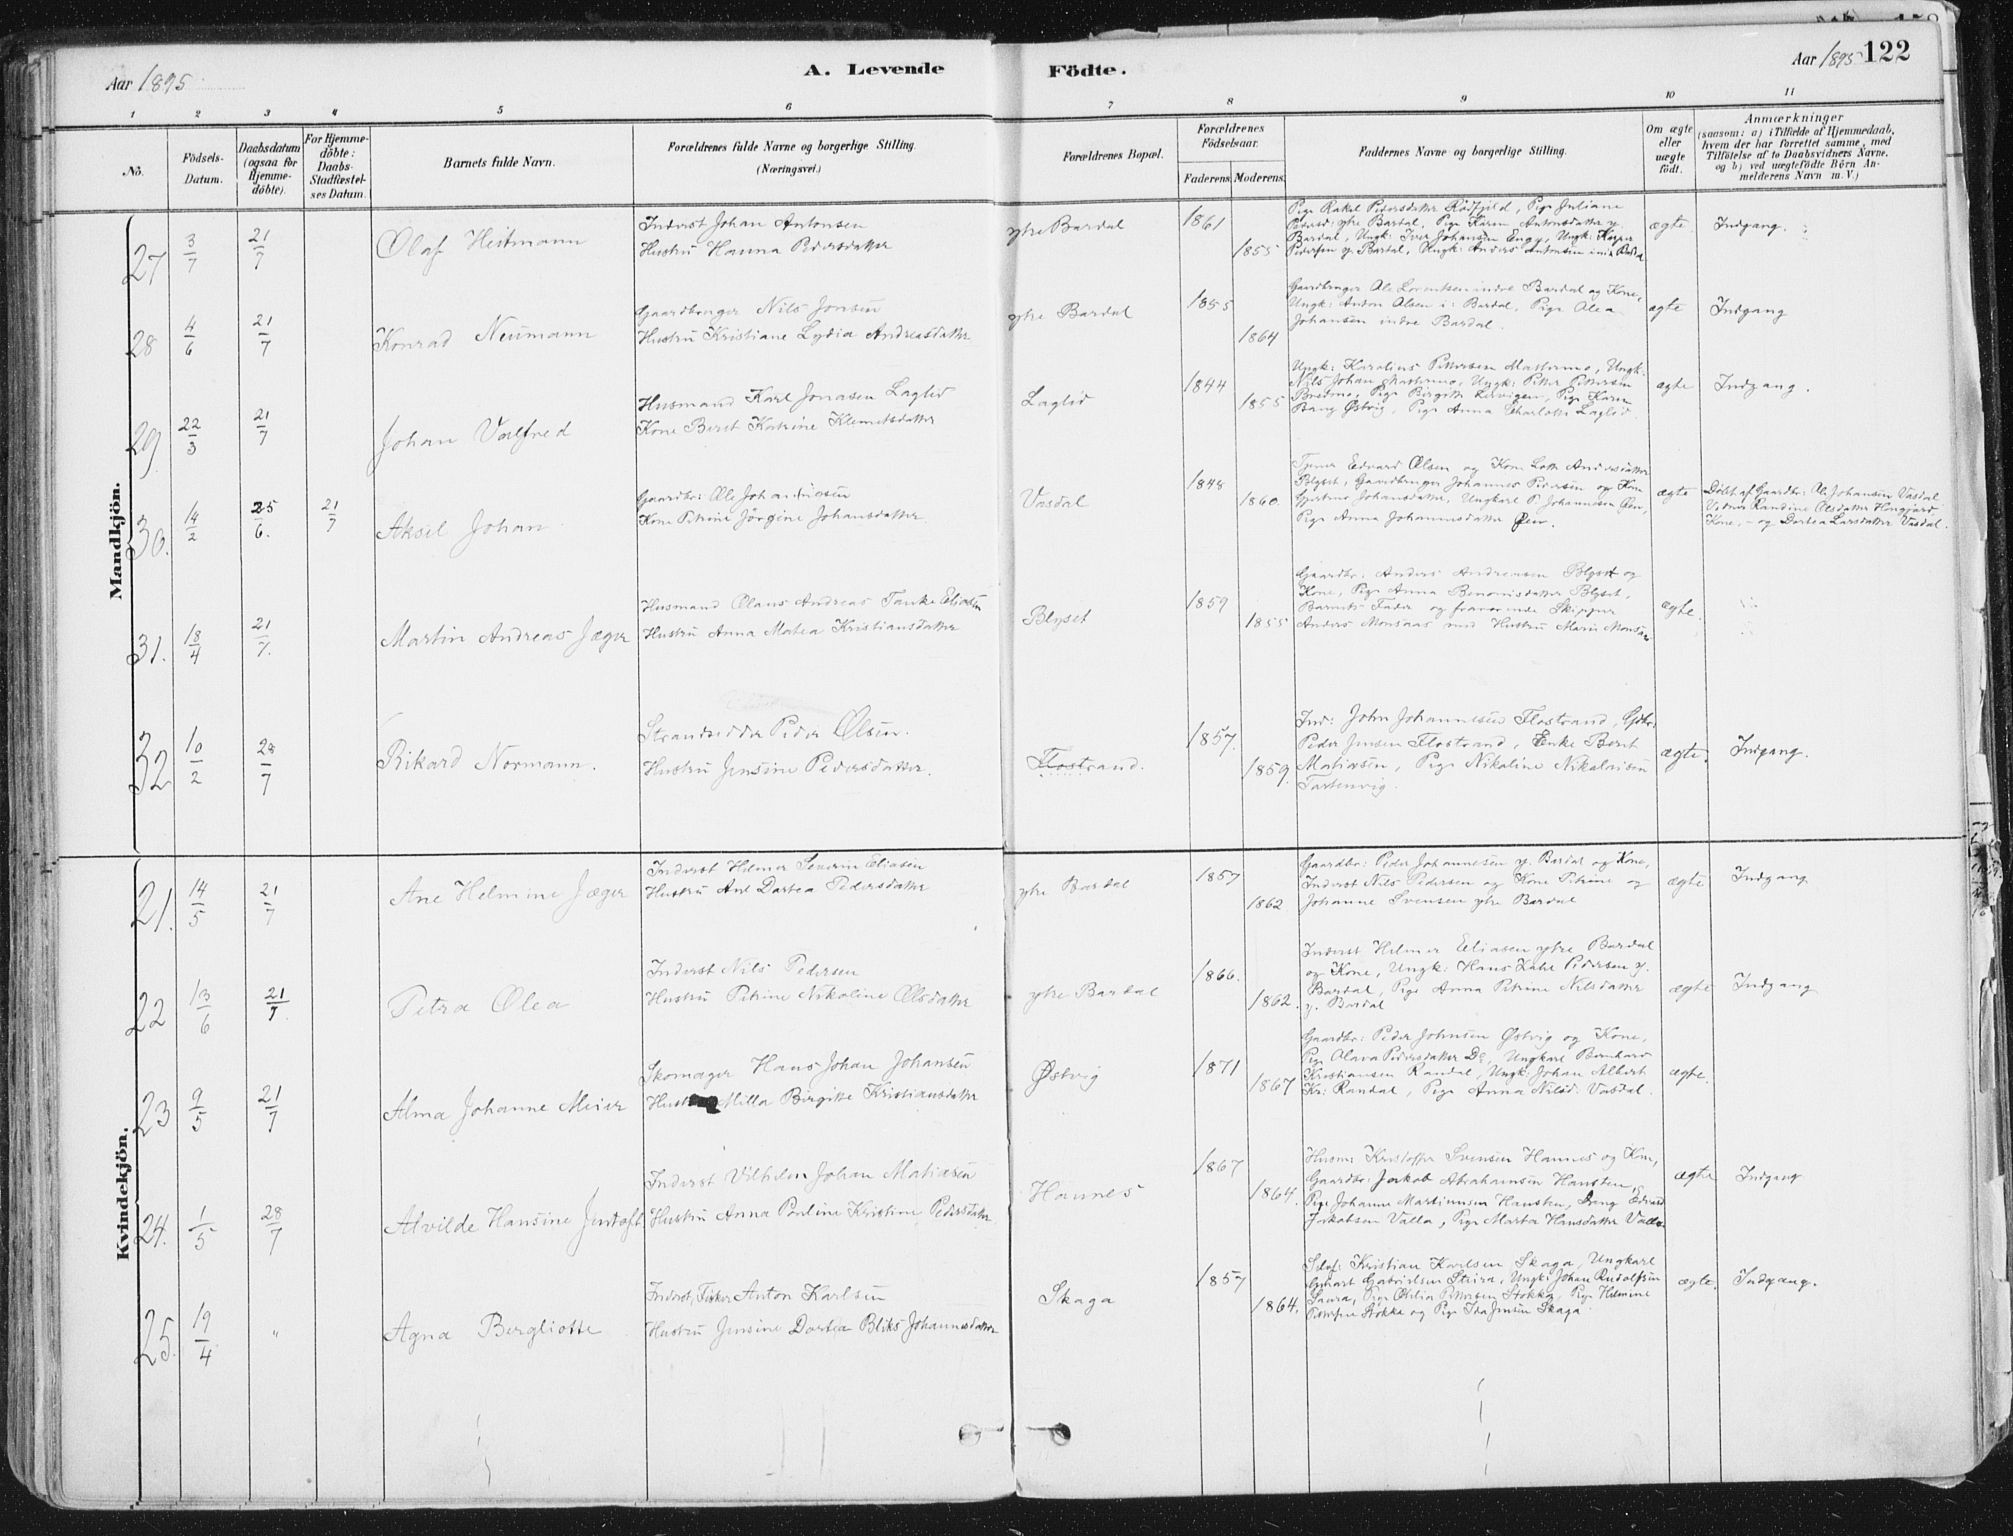 Aar 1895
A. Levende
Födte.
Aar 1895 122
1 2 3 4 5 6 7 8 9 10 11
No.
Födsels-
Datum.
Daabsdatum
(ogsaa for
Hjemme-
döbte).
For Hjemme-
döbte:
Daabs-
Stadfæstel-
ses Datum.
Barnets fulde Navn.
Forældrenes fulde Navne og borgerlige Stilling.
(Næringsvei.)
Forældrenes Bopæl.
Forældrenes
Födselsaar.
Faderens. Moderens.
Faddernes Navne og borgerlige Stilling.
Om ægte
eller
uægte
født.
Anmærkninger
(saasom: a) i Tilfælde af Hjemmedaab,
hvem der har forrettet samme, med
Tilføielse af to Daabsvidners Navne.
og b) ved uægtefödte Börn An-
melderens Navn m. V.)
Mandkjön.
27 3/7 21/7 Olaf Heitmann
Inderst Johan Antonsen
Hustru Hanna Pedersdatter
ytre Bardal 1861 1855
Pige Rakel Pedersdatter Rödfjeld, Pige Juliane
Pedersd: ytre Bardal, Pige Karen Antonsdatter y.
Bardal, Ungk: Iver Johansen Engy, Ungk: Kasper
Pedersen y. Bardal, Ungk: Anders Antonsen indr Bardal
ægte Indgang.
28 4/6 21/7 Konrad Neumann
Gaardbruger Nils Jonsen
Hustru Kristiane Lydia Andreasdatter
ytre Bardal 1855 1864
Gaardbruger Ole Lorentsen indre Bardal og Kone,
Ungk: Anton Olsen i: Bardal, Pige Alea
Johansen indre Bardal.
ægte Indgang
29. 22/3 21/7 Johan Valfred
Husmand Karl Jonasen Laglid
Kone Berit Katrine Klemetsdatter
Laglid 1844 1855
Ungk: Karolius Pettersen Mastermo, Ungk.
Nils Johan Mastermo, Ungk: Petter Pettersen
Bredmo, Pige Birgitte Leirvigen, Pige Karen
Bang Østvig, Pige Anna Charlotte Laglid.
ægte Indgang.
30. 14/2 25/6. 21/7 Aksel Johan
Gaardbr: Ole Johan
Kone Petrine Jörgine Johansdatter
Vasdal 1848 1860.
Tjener Edvard Olsen og Kone Lotte Andersdatter
Blyset, Gaardbruger Johannes Pedersen og Kone
Gjertrud Johansdatter, Ungkarl P. Johannesen Øen,
Pige Anna Johannesdatter Øen.
ægte Döbt af Gaardbr: Ole Johansen Vasdal
Vidner Randine Olsdatter
Kone, – og Dortea Larsdatter Vasdal.
31. 18/4 21/7. Martin Andreas Jæger
Husmand Olaus Andreas Tanke Eliasen
Hustru Anna Matea Kristiansdatter
Blyset 1859 1855
Gaardbr: Anders Andreasen Blyset og
Kone, Pige Anna Benonisdatter Blyset,
Barnets Fader og fraværende Skipper
Anders Monsaas med Hustru Maria Monsaas
ægte.
32 10/2 28/7 Rikard Normann.
Strandsidder Peder Olsen.
Hustru Jensine Pedersdatter.
Flostrand. 1857. 1859.
Ind: John Johannesen Flostrand, Gdbr:
Peder Jensen Flostrand, Enke Berit
Matiasen, Pige Nikoline Nikolaisen
ægte. Indgang.
Kvindekjön.
21. 14/5 21/7 Ane Helmine Jæger
Inderst Helmer Severin Eliasen
Hustru Ane Dortea Pedersdatter
ytre Bardal 1857 1862
Gaardbr: Peder Johannesen y. Bardal og Kone,
Inderst Nils Pedersen og Kone Petrine og
Johanne Svensen ytre Bardal
ægte Indgang
22 13/6 21/7 Petra Olea
Inderst Nils Pedersen
Hustru Petrine Nikoline Olsdatter
ytre Bardal 1866. 1862.
Inderst Helmer Eliasen ytre Bardal
og Kone, Ungk: Hans Pedersen y.
Bardal, Pige Anna Petrine Nilsdatter
y. Bardal
ægte Indgang
23 9/5 21/7 Alma Johanne Meier
Skomager Hans Johan Johansen
Hustru Milla Birgitte Kristiansdatter
Østvig 1871 1867
Gaardbr: Peder Johnsen Østvig og Kone,
Pige Olava Pedersdatter Do, Ungkarl Bernhard
Kristiansen Randal, Ungk: Johan Albert
Kr: Randal, Pige Anna Nilsd. Vasdal.
ægte.
24. 1/5 28/7 Alvilde Hansine Jentoft
Inderst Vilhelm Johan Matiasen
Hustru Anna Pauline Kristine Pedersdatter
Hannes 1867 1864.
Husm: Kristoffer Svensen Hannes og Kone,
Gaardbr: Jakob Abrahamsen Hansten,
Pige Johanne Martinusen Hansten, Dreng Edvard
Jakobsen Valla, Pige Marta Hansdatter Valla.
ægte Indgang
25. 19/4 " Agna Bergliotte
Inderst, Fisker Anton Karlsen
Hustru Jensine Dortea Bliks Johannesdatter
Skaga 1857 1864.
Kristian Karlsen Skaga, Ungkarl
Gabrielsen Ungk: Johan Rudolfsen
Pige Otelia Pettersen Stokka, Pige Helmine
Pettersen Stokka og Pige Ida Jensen Skaga
ægte. Indgang.